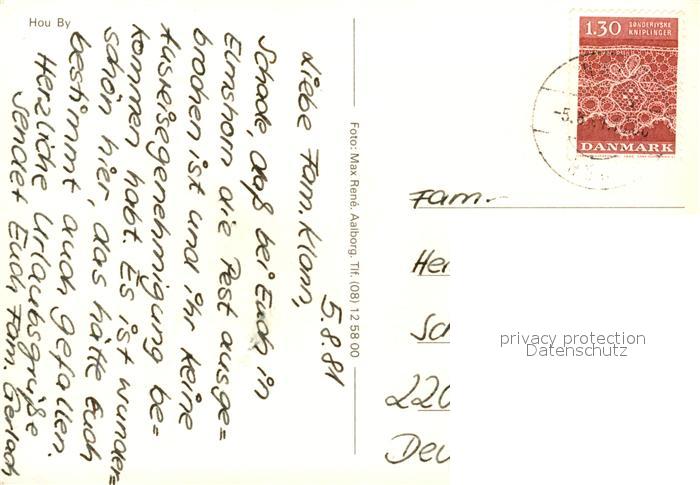 Hou By
5.8.81
Liebe Fam. Klann,
Schade, daß bei Euch in
Elmshorn die Pest ausge=
brochen ist und ihr keine
Ausreisegenehmigung be=
kommen habt. Es ist wunder=
schön hier, das hätte Euch
bestimmt auch gefallen.
Herzliche Urlaubsgrüße
sendet Euch Fam. Gerlach
Foto: Max René. Aalborg. Tlf. (08) 12 58 00
1.30 SØNDERJYSKE
KNIPLINGER
DANMARK
Fam.
He
Sc
220
Deu
privacy protection
Datenschutz